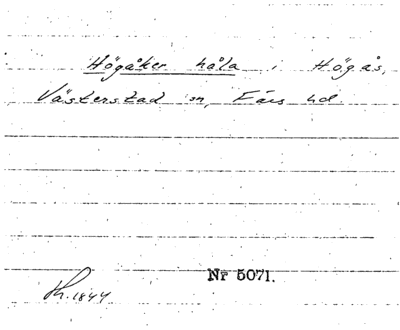 Högåker håla i Högås,
Västerstad sn, Färs hd.
Nr 5071.
1844